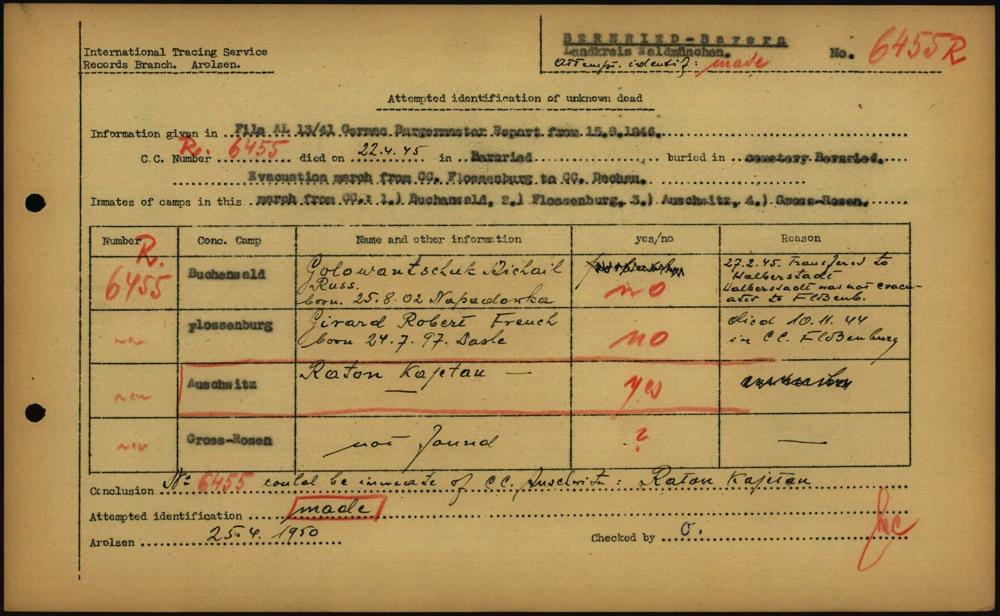 International Tracing Service
Records Branch. Arolsen.
BERNRIED-Bayern
Landkreis Waldmünchen.
Attempt. identif: made
No. 6455R
Attempted identification of unknown dead
Information given in File AL 13/41 German Burgermaster Report from 15.8.1946.
C.C. Number R. 6455 died on 22.4.45 in Bernried buried in cemetery Bernried.
Evacuation march from CC. Flossenburg to CC. Dachau.
Inmates of camps in this march from CC.: 1.) Buchenwald, 2.) Flossenburg, 3.) Auschwitz, 4.) Gross-Rosen.
Number Conc. Camp Name and other information yes/no Reason
R. 6455 Buchenwald Golowantschuk Michail
Russ.
born. 25.8.02 Napadowka
no
27.2.45. Transfered to
Halberstadt
Halberstadt was not evacu-
ated to Floßenb.
-"- Flossenburg Girard Robert French
born 24.7.97.
no
died 10.11.44
in CC. Floßenburg
-"- Auschwitz Raton Kajetan — yes
-"- Gross-Rosen not found ? —
Conclusion No 6455 could be inmate of CC. Auschwitz: Raton Kajetan
Attempted identification made
Arolsen 25.4.1950 Checked by O.